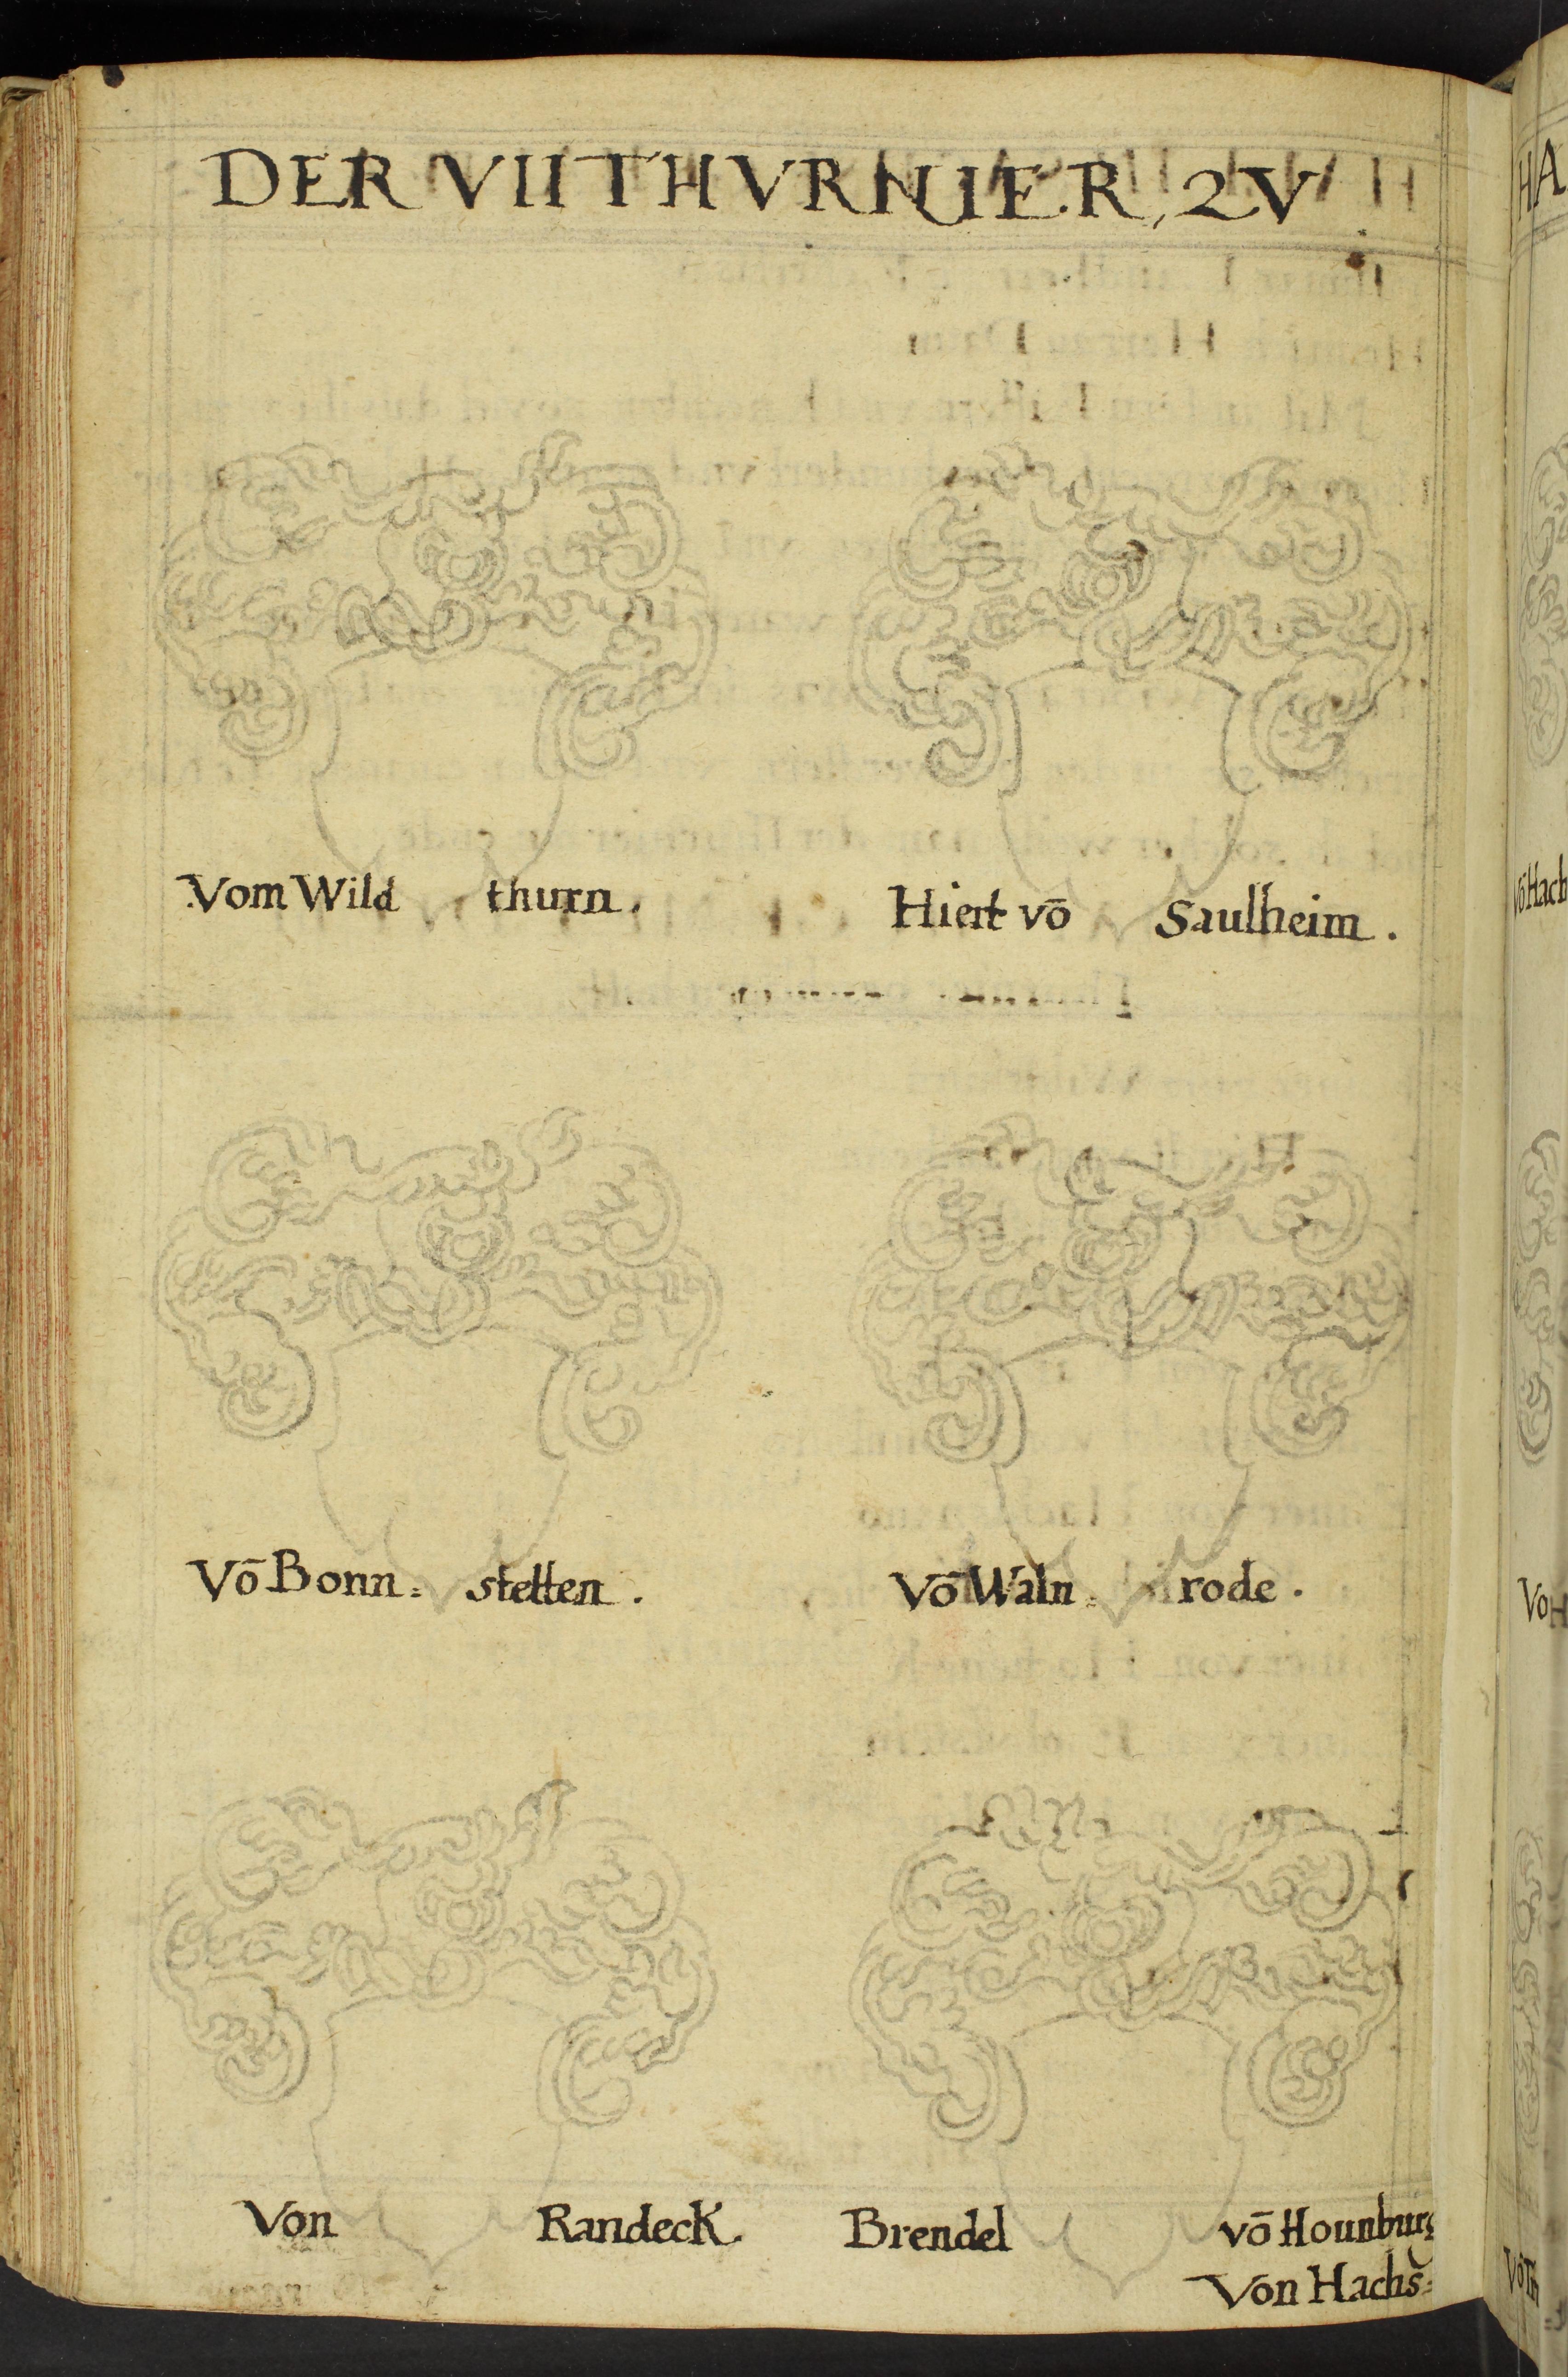 DER VII THVRNIER, 2V
Vom Wild thurn.
Hiert vō Saulheim.
Vō Bonn= stetten.
Vō Waln= rode.
Von Randeck.
Brendel vō Hounburg
Von Hachs=
HA
vō Hach
Vo H